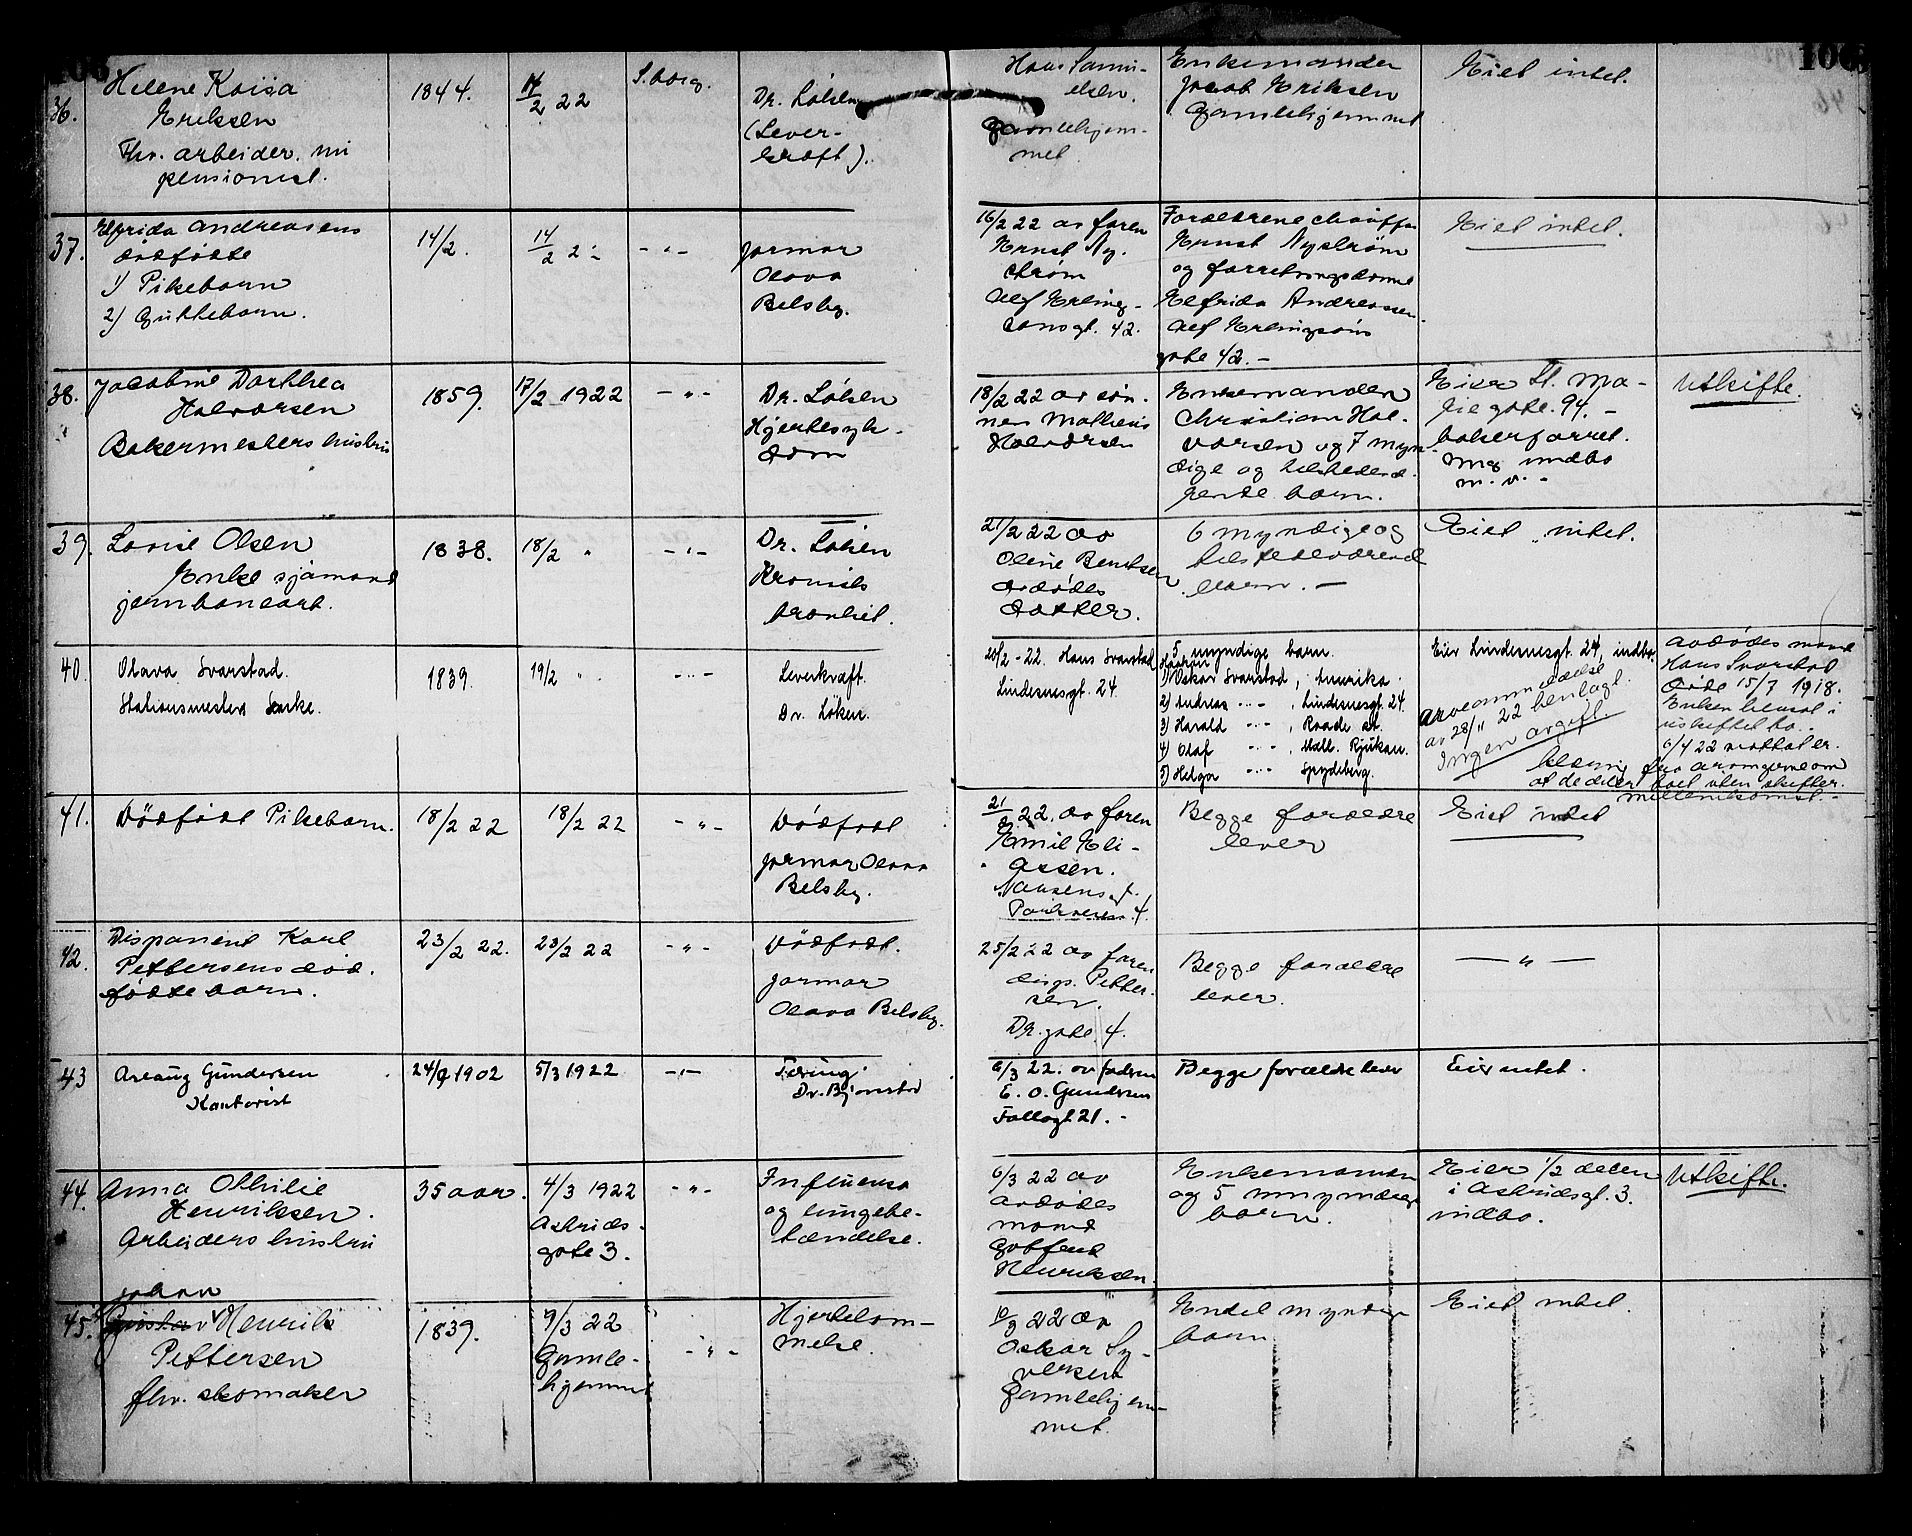 106
106
36.
Helene Kaisa
Eriksen
Fhv. arbeider. nu
pensionist.
1844.
14/2 22
S.borg.
Dr. Løken
(Lever-
kræft).
Hans Samu-
elsen.
Gamlehjem-
met.
Enkemanden
Jacob Eriksen
Gamlehjemmet
Eiet intet.
37.
Elfrida Andreasens
dødfødte
1) Pikebarn
2) Guttebarn.
14/2.
14/2 2
- " -
Jormor
Olava
Belsby.
16/2 22 av faren
Ernst Ny-
strøm
Alf Erling-
sønsgt. 42.
Forældrene chauffør
Ernst Nystrøm
og forretningsdame
Elfrida Andreassen.
Alf Erlingsøns
gate 42. -
Eiet intet.
38.
Jacobine Dorthea
Halvorsen
Bakermesters hustru
1859.
17/2 1922
- " -
Dr. Løken
Hjertesyk-
dom
18/2 22 av søn-
nen Matheus
Halvorsen
Enkemanden
Christian Hal-
vorsen og 7 myn-
dige og tilstedevæ-
rende barn.
Eier St. Ma-
rie gate. 94. -
bakerforret.
og indbo
m. v. -
Utskifte.
39.
Lovise Olsen
Enke sjømand
jernbanearb.
1838.
18/2 "
- " -
Dr. Løken
Kronisk
bronkit.
21/2 22 av
Oline Berntsen
avdødes
datter.
6 myndige og
tilstedeværend
barn. -
Eiet intet.
40.
Olava Svarstad.
Stationsmester Enke.
1839.
19/2 "
- " -
Leverkræft.
Dr. Løken.
20/2 - 22. Hans Svarstad
Lindesnesgt. 24.
5 myndige barn.
Haakon
1) Oskar Svarstad, Amerika.
2) Andreas - " - , Lindesnesgt. 24.
3) Harald - " - , Raade st.
4) Olaf - " - , Mæl. Rjukan.
5) Helga - " - Spydeberg.
Eier Lindesnesgt. 24, indbo
Arveanmeldelse
av 28/11 22 henlagt.
Ingen avgift.
avdødes mand
Hans Svarstad
døde 15/7 1918.
Enken hensat i
uskiftet bo.
6/4 22 mottat er-
klæring fra arvingerne om
at de deler boet uten skifter.
mellemkomst. -
41.
Dødfødt Pikebarn.
18/2 22
18/2 22
- " -
Dødfødt
Jormor Olava
Belsby.
21/2 22. av faren
Emil Eli-
assen.
Nansensgt.
4.
Begge forældre
lever
Eiet intet
42.
Disponent Karl
Pettersens død-
fødte barn.
23/2 22.
23/2 22
- " -
Dødfødt.
Jormor
Olava Belsby.
25/2 22 av faren
disp. Petter-
sen.
Dr. gate. 4.
Begge forældre
lever.
- " -
43
Aslaug Gundersen
Kontorist
24/9 1902
5/3 1922
- " -
Tæring
Dr. Bjørnstad
6/3 22. av faderen
E. O. Gundersen
Torvgt 21. -
Begge forældre lever
Eier intet.
44.
Anna Othilie
Henriksen.
Arbeiders hustru
35 aar.
4/3 1922
Astrids-
gate 3.
- " -
Influensa
og lungebe-
tændelse.
6/3 22 av
avdødes
mand
Gotfred
Henriksen.
Enkemanden
og 5 umyndige
barn.
Eier 1/2 delen
i Astridsgt. 3.
indbo.
Utskifte.
45.
Johan
Gustav Henrik
Pettersen
fhv. skomaker
1839.
9/3 22
Gamle-
hjemmet
- " -
Hjertelam-
melse.
10/3 22 av
Oskar Sy-
versen
Gamlehjem-
met.
Endel myndige
barn
Eiet intet.